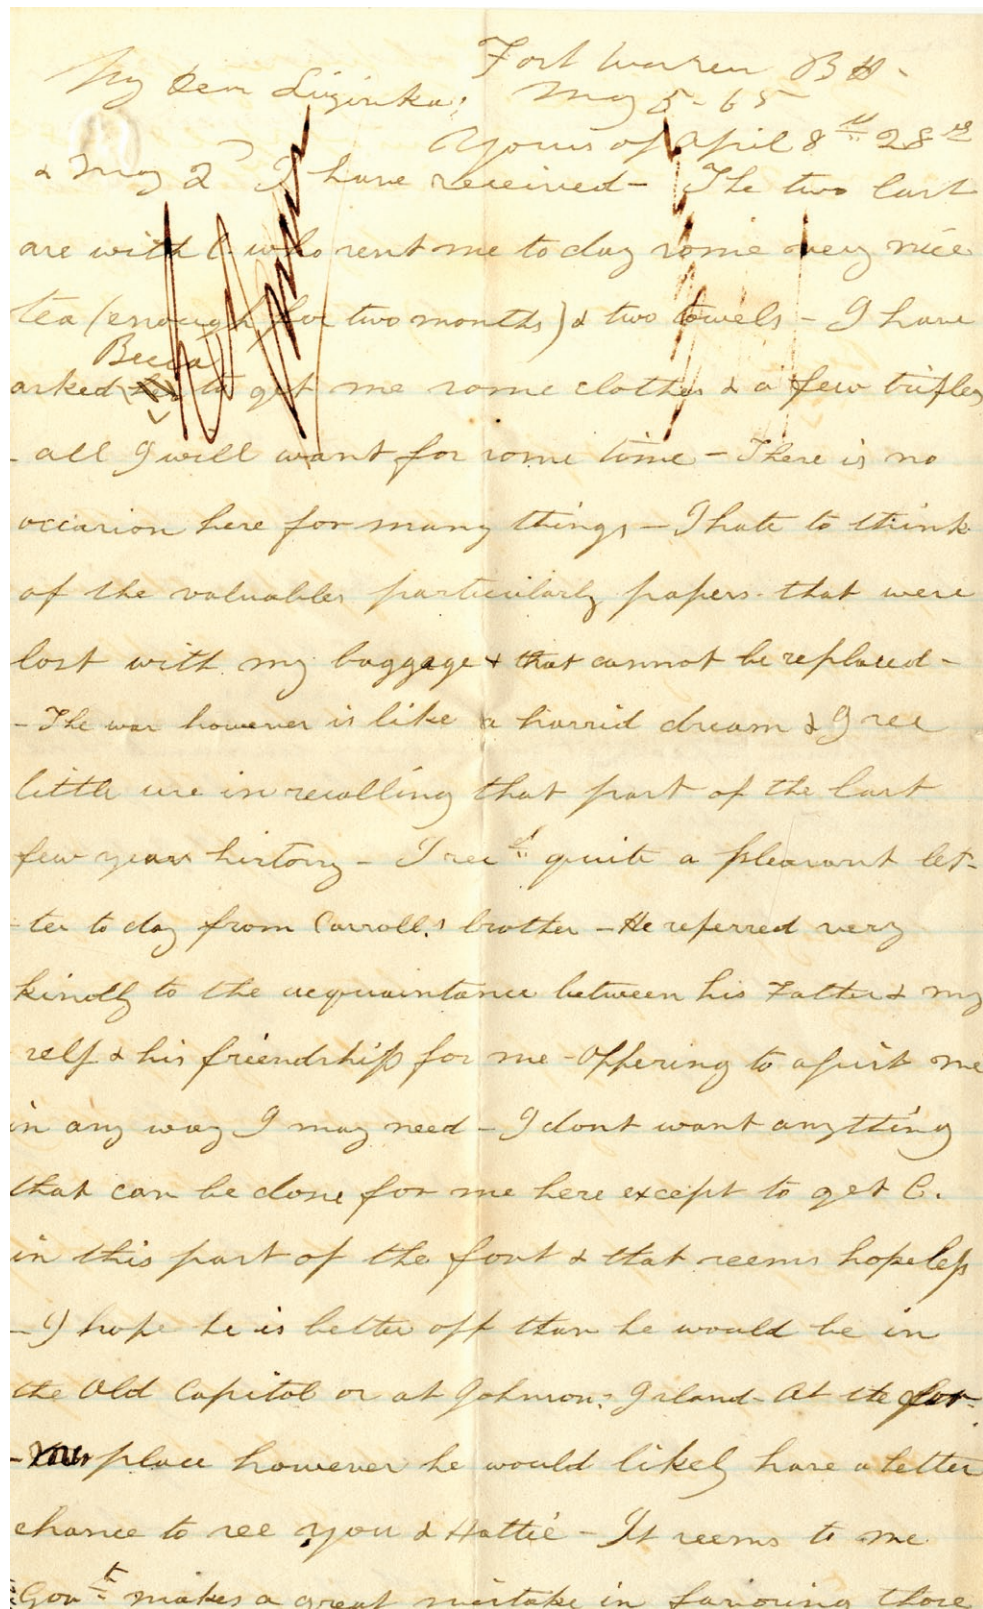 Fort Warren B H.
My Dear Lizinka: May 5 - 65
Yours of April 8th 28th
& May 2d I have received - The two last
are with C. who sent me to day some very nice
tea (enough for two months) & two towels - I have
Becca
asked to get me some clothes & a few trifles
- all I will want for some time - There is no
occasion here for many things - I hate to think
of the valuables particularly papers that were
lost with my baggage & that cannot be replaced -
- The war however is like a horrid dream & I see
little use in recalling that part of the last
few years history - I recd quite a pleasant let-
-ter to day from Carroll's brother - He referred very
kindly to the acquaintance between his Father & my
self & his friendship for me - Offering to assist me
in any way I may need - I dont want anything
that can be done for me here except to get C.
in this part of the fort & that seems hopeless
- I hope he is better off than he would be in
the Old Capitol or at Johnson's Island - At the for-
-mer place however he would likely have a better
chance to see you & Hattie - It seems to me
Govt makes a great mistake in favoring those